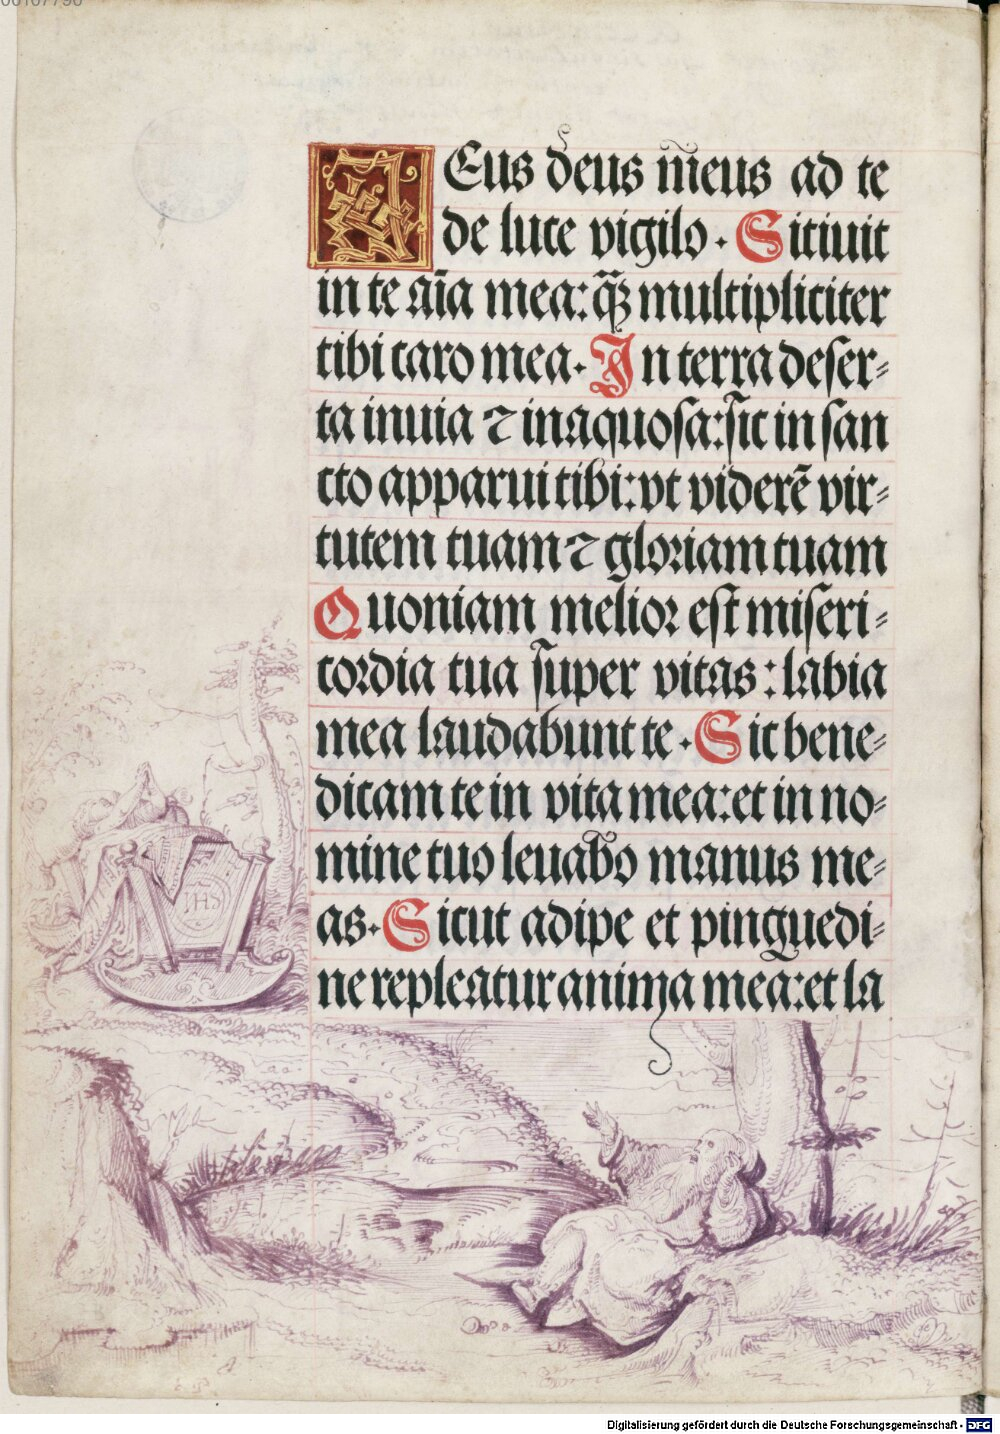 00107790
DEus deus m̄eus ad te
de luce vigilo. Sitiuit
in te aīa mea: q̄ȝ multipliciter
tibi caro mea. In terra deser-
ta inuia ⁊ inaquosa: sic in san
cto apparui tibi: vt viderē vir-
tutem tuam ⁊ gloriam tuam
Quoniam melior est miseri-
cordia tua super vitas: labia
mea laudabunt te. Sic bene-
dicam te in vita mea: et in no-
mine tuo leuabo manus me-
as. Sicut adipe et pinguedi-
ne repleatur anima mea: et la
IHS
Digitalisierung gefördert durch die Deutsche Forschungsgemeinschaft - DFG